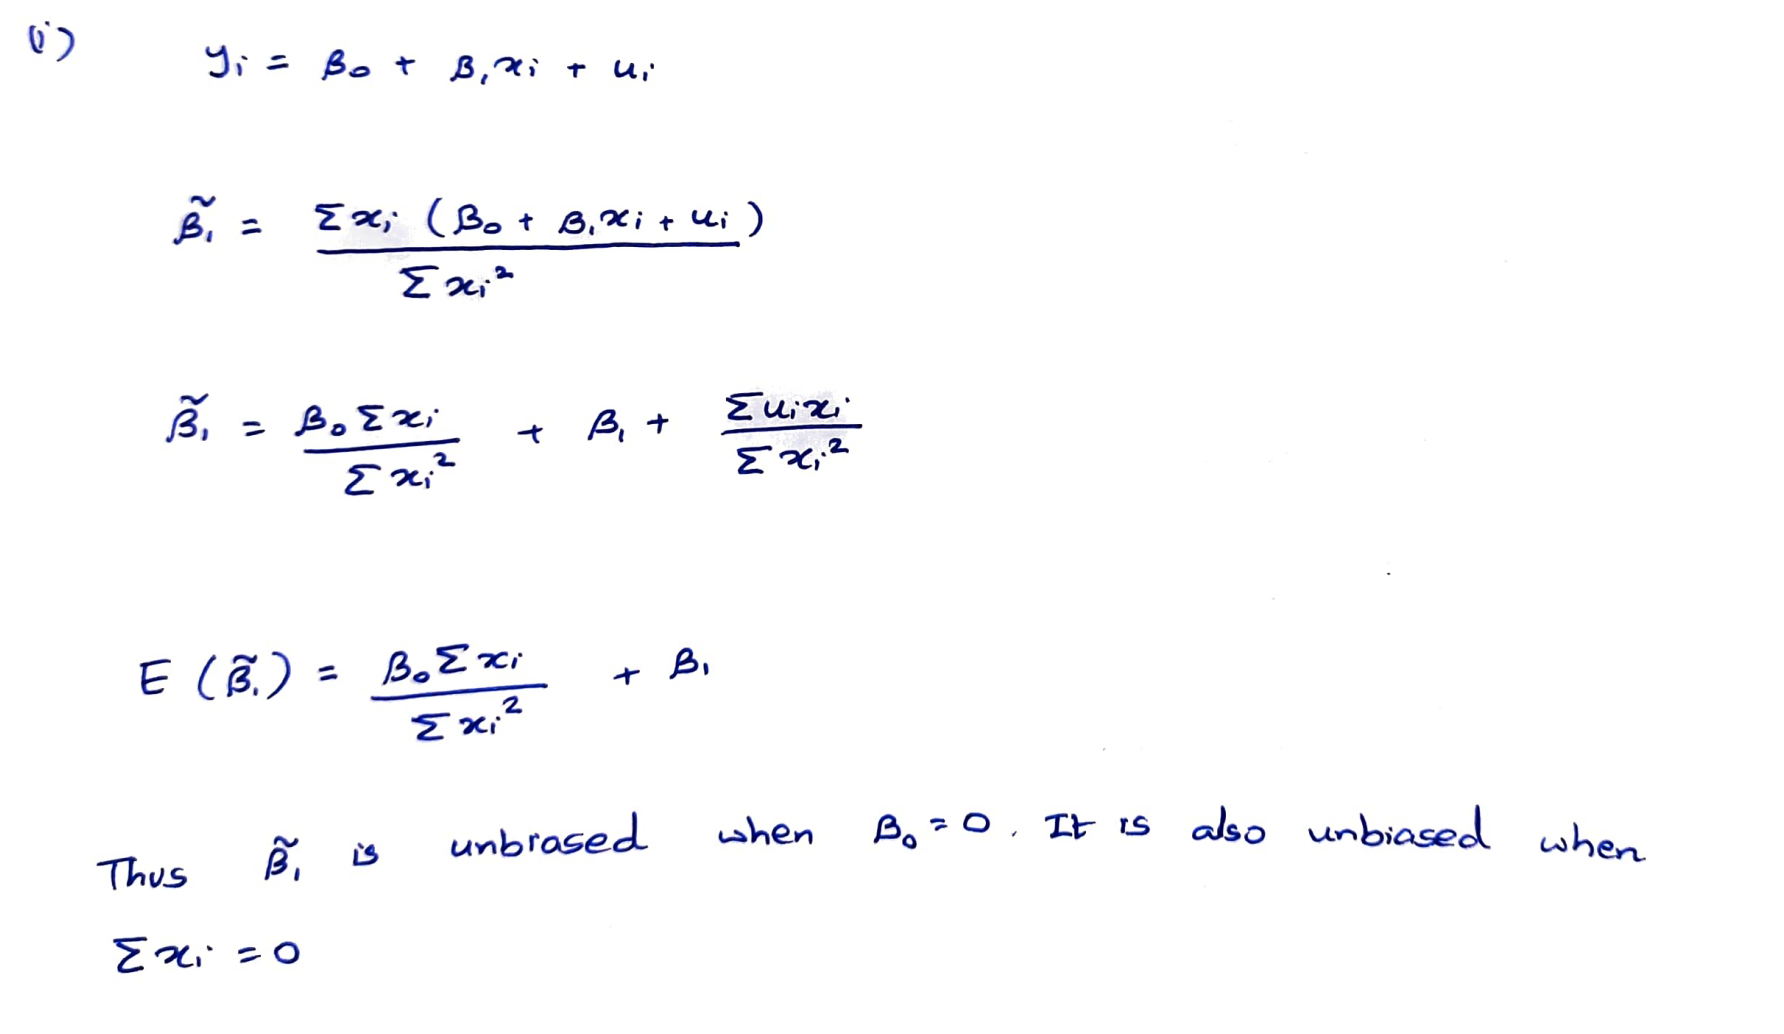 (i) yi = β0 + β1xi + ui
β̃1 = Σxi (β0 + β1xi + ui) / Σxi²
β̃1 = β0Σxi / Σxi² + β1 + Σuixi / Σxi²
E (β̃1) = β0Σxi / Σxi² + β1
Thus β̃1 is unbiased when β0 = 0. It is also unbiased when
Σxi = 0